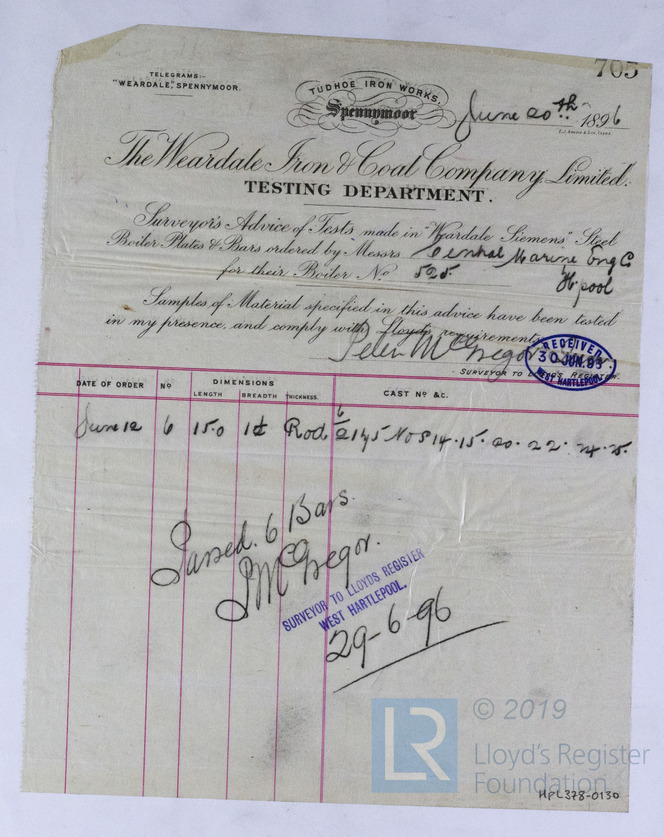 705
TELEGRAMS:-
"WEARDALE," SPENNYMOOR.
TUDHOE IRON WORKS,
Spennymoor
June 20th 1896
The Weardale Iron & Coal Company, Limited.
TESTING DEPARTMENT.
Surveyor's Advice of Tests made in "Weardale Siemens" Steel
Boiler Plates & Bars ordered by Messrs Central Marine Eng Co
H'pool
for their Boiler No 525
Samples of Material specified in this advice have been tested
in my presence, and comply with Lloyds requirements
Peter McGregor
SURVEYOR TO LLOYD'S REGISTER.
RECEIVED
30 JUN. 96
WEST HARTLEPOOL
DATE OF ORDER No DIMENSIONS CAST No &c.
LENGTH BREADTH THICKNESS.
June 12 6 15.0 Rod 14. 15. 20. 22. 24. 25.
Passed. 6 Bars.
P McGregor.
SURVEYOR TO LLOYDS REGISTER
WEST HARTLEPOOL.
29-6-96
LR
© 2019
Lloyd's Register
Foundation
HPL378-0130